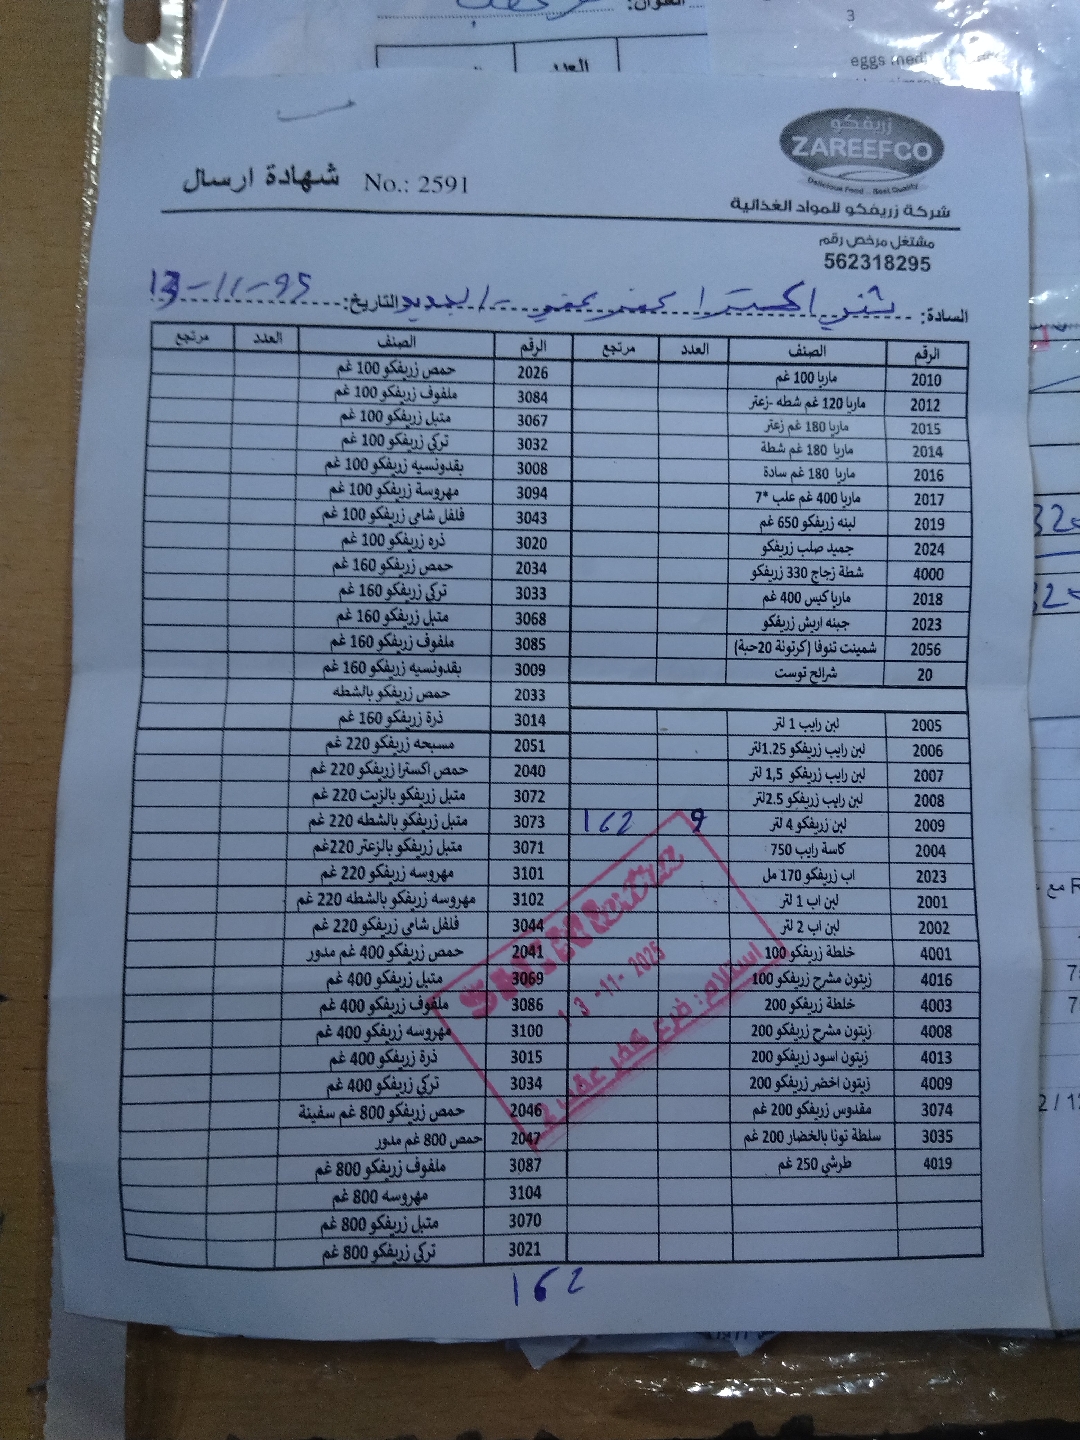 العنوان:
العدد
3
eggs med
زريفكو
ZAREEFCO
Delicious Food .. Best Quality
شهادة ارسال No.: 2591
شركة زريفكو للمواد الغذائية
مشتغل مرخص رقم
562318295
السادة: التاريخ: 13-11-25
الرقم الصنف العدد مرتجع الرقم الصنف العدد مرتجع
2010 ماريا 100 غم 2026 حمص زريفكو 100 غم
2012 ماريا 120 غم شطه -زعتر 3084 ملفوف زريفكو 100 غم
2015 ماريا 180 غم زعتر 3067 متبل زريفكو 100 غم
2014 ماريا 180 غم شطة 3032 تركي زريفكو 100 غم
2016 ماريا 180 غم سادة 3008 بقدونسيه زريفكو 100 غم
2017 ماريا 400 غم علب *7 3094 مهروسة زريفكو 100 غم
2019 لبنه زريفكو 650 غم 3043 فلفل شامي زريفكو 100 غم
2024 جميد صلب زريفكو 3020 ذره زريفكو 100 غم
4000 شطة زجاج 330 زريفكو 2034 حمص زريفكو 160 غم
2018 ماريا كيس 400 غم 3033 تركي زريفكو 160 غم
2023 جبنه اريش زريفكو 3068 متبل زريفكو 160 غم
2056 شمينت تنوفا (كرتونة 20حبة) 3085 ملفوف زريفكو 160 غم
20 شرائح توست 3009 بقدونسيه زريفكو 160 غم
2033 حمص زريفكو بالشطه
2005 لبن رايب 1 لتر 3014 ذرة زريفكو 160 غم
2006 لبن رايب زريفكو 1.25لتر 2051 مسبحه زريفكو 220 غم
2007 لبن رايب زريفكو 1,5 لتر 2040 حمص اكسترا زريفكو 220 غم
2008 لبن رايب زريفكو 2.5لتر 3072 متبل زريفكو بالزيت 220 غم
2009 لبن زريفكو 4 لتر 9 162 3073 متبل زريفكو بالشطه 220 غم
2004 كاسة رايب 750 3071 متبل زريفكو بالزعتر 220غم
2023 اب زريفكو 170 مل 3101 مهروسه زريفكو 220 غم
2001 لبن اب 1 لتر 3102 مهروسه زريفكو بالشطه 220 غم
2002 لبن اب 2 لتر 3044 فلفل شامي زريفكو 220 غم
4001 خلطة زريفكو 100 2041 حمص زريفكو 400 غم مدور
4016 زيتون مشرح زريفكو 100 3069 متبل زريفكو 400 غم
4003 خلطة زريفكو 200 3086 ملفوف زريفكو 400 غم
4008 زيتون مشرح زريفكو 200 3100 مهروسه زريفكو 400 غم
4013 زيتون اسود زريفكو 200 3015 ذرة زريفكو 400 غم
4009 زيتون اخضر زريفكو 200 3034 تركي زريفكو 400 غم
3074 مقدوس زريفكو 200 غم 2046 حمص زريفكو 800 غم سفينة
3035 سلطة تونا بالخضار 200 غم 2047 حمص 800 غم مدور
4019 طرشي 250 غم 3087 ملفوف زريفكو 800 غم
3104 مهروسه 800 غم
3070 متبل زريفكو 800 غم
3021 تركي زريفكو 800 غم
13 -11- 2025
استلام: فرع كفر عقب
162